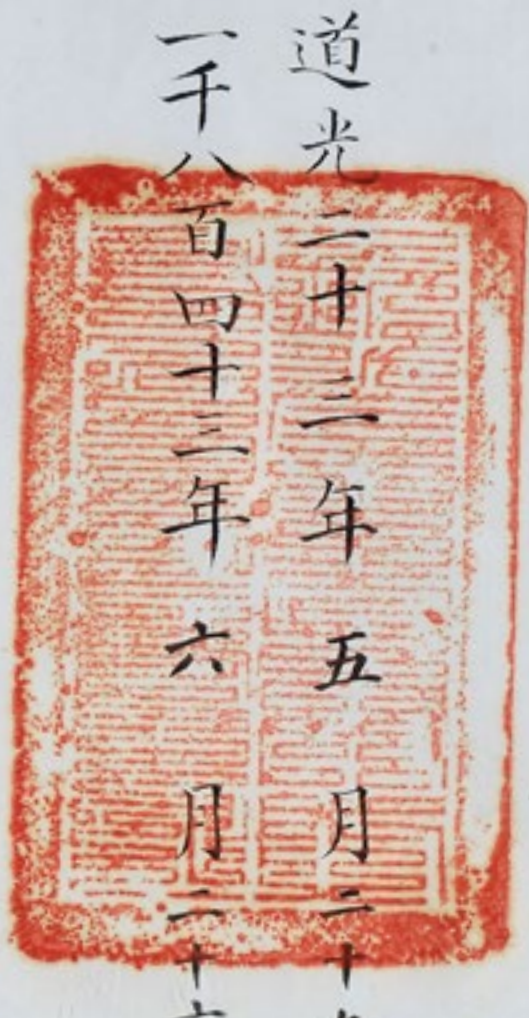 道光二十三年五月二十
一千八百四十三年六月二十